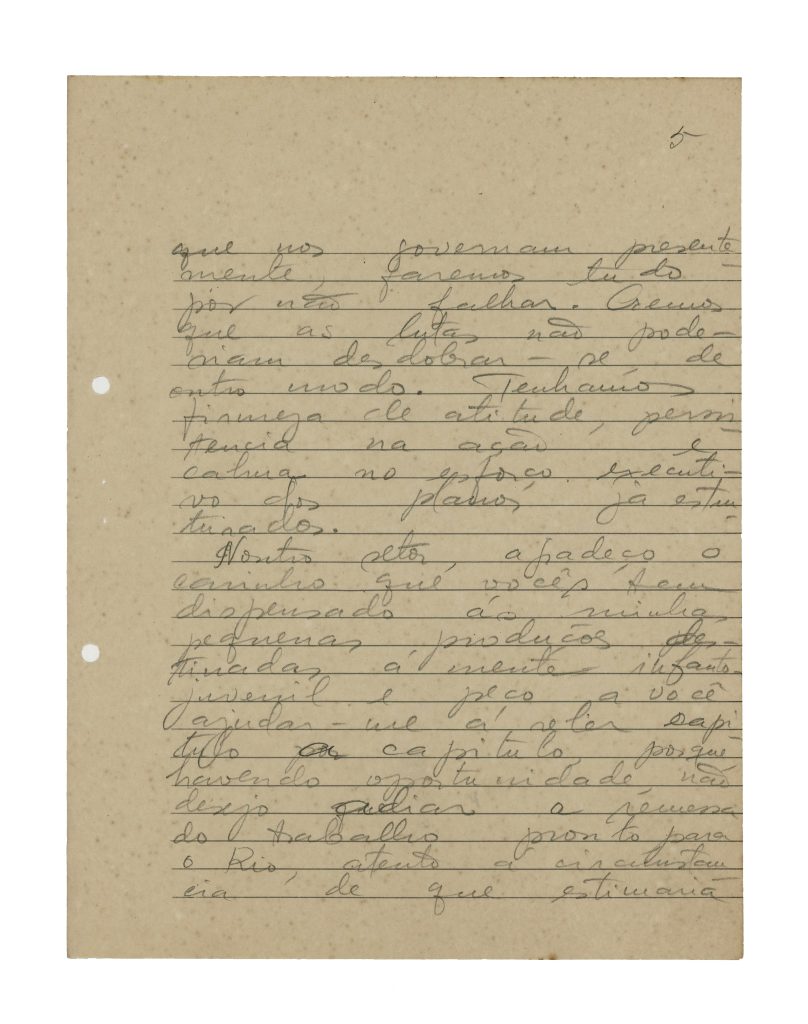 5
que nos governam presente-
mente, faremos tudo
por não falhar. Cremos
que as lutas não pode-
riam desdobrar-se de
outro modo. Tenhamos
firmeza de atitude, persis-
tencia na ação e
calma no esforço executi-
vo dos planos já estru-
turados.
Noutro setor, agradeço o
carinho que vocês tem
dispensado ás minhas
pequenas produções des-
tinadas á mente infanto-
juvenil e peço a você
ajudar-me á reler capi-
tulo a capitulo, porque
havendo oportunidade, não
desejo adiar a remessa
do trabalho pronto para
o Rio, atento á circunstan-
cia de que estimaria